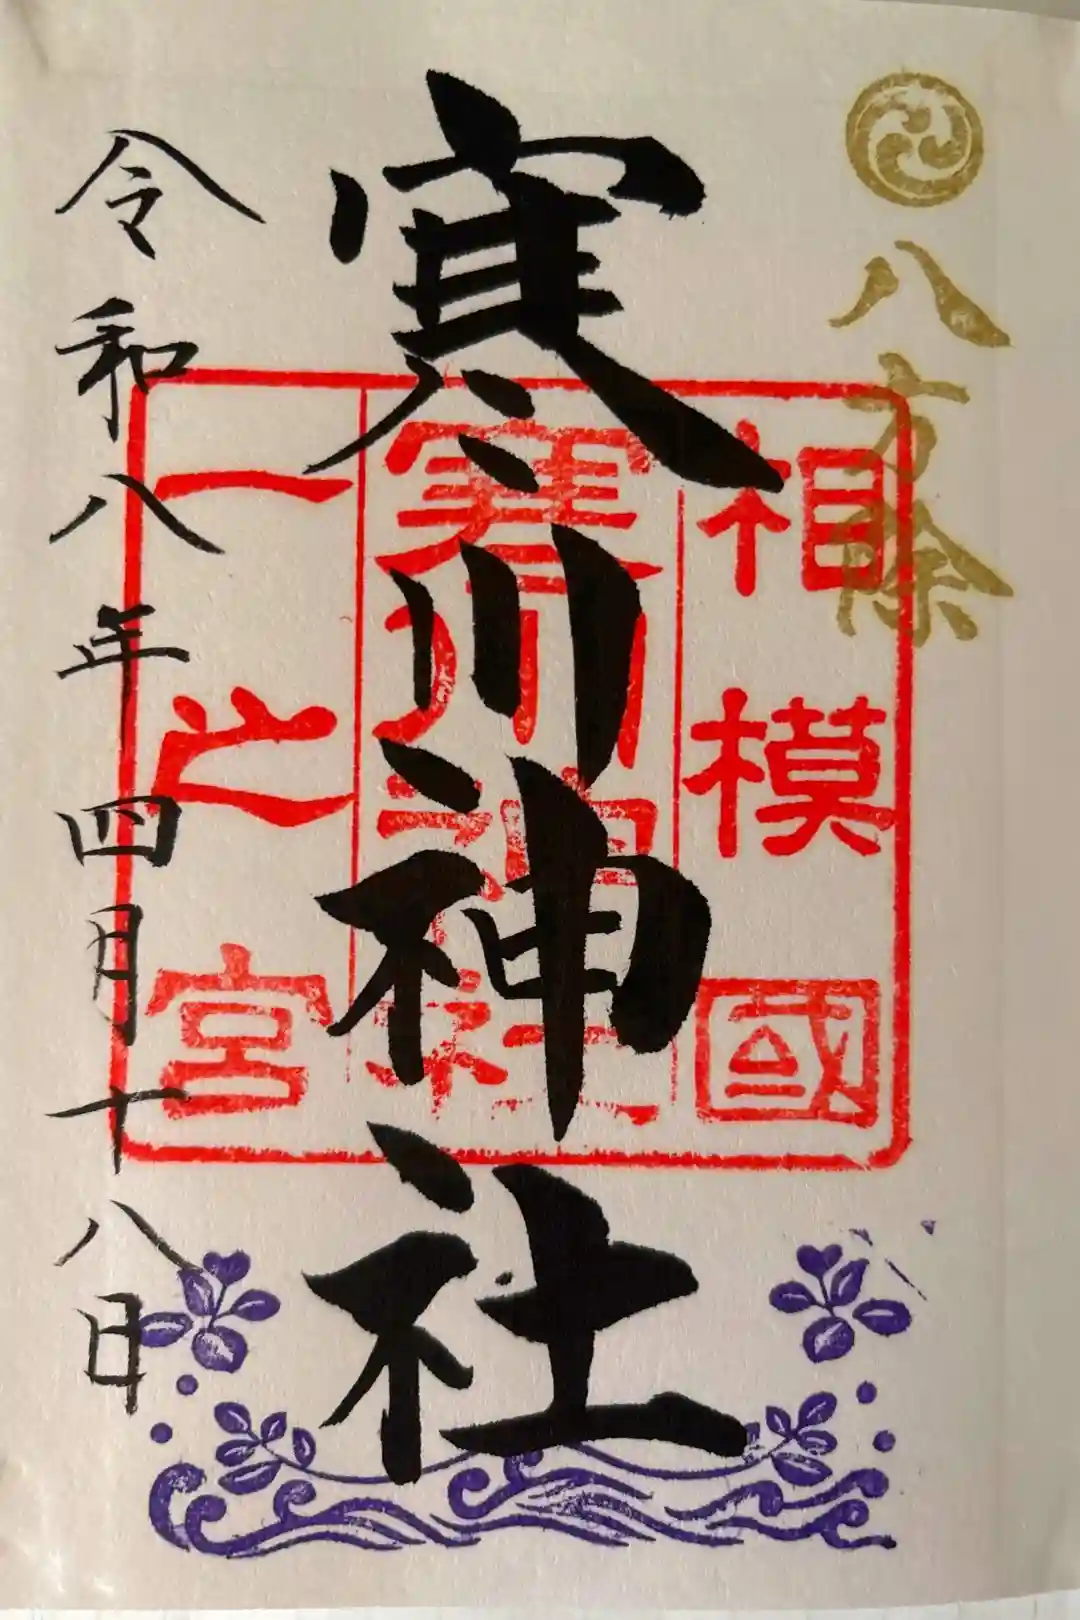 八方除
相模國
寒川神社
寒川神社
一之宮
令和八年四月十八日